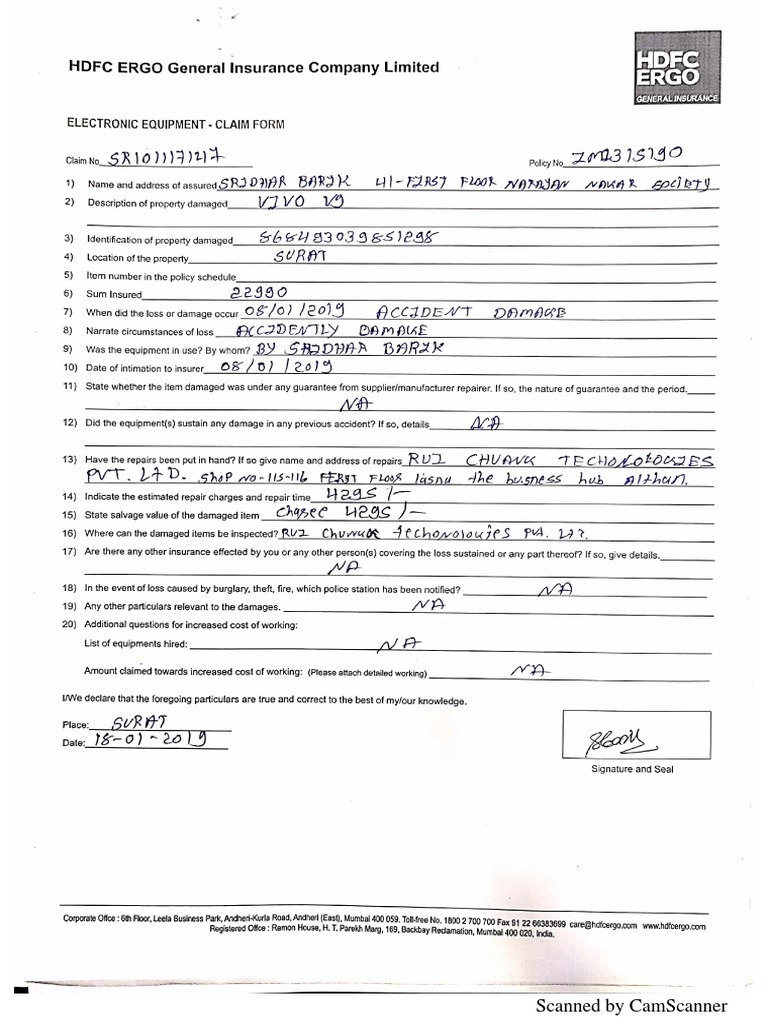 HDFC ERGO General Insurance Company Limited
HDFC
ERGO
GENERAL INSURANCE
ELECTRONIC EQUIPMENT - CLAIM FORM
Claim No SR101117127 Policy No
1) Name and address of assured SRIDHAR BARIK 41-FIRST FLOOR NARAYAN NAGAR SOCIETY
2) Description of property damaged VIVO V9
3) Identification of property damaged 868493039851298
4) Location of the property SURAT
5) Item number in the policy schedule
6) Sum Insured 22990
7) When did the loss or damage occur 08/01/2019 ACCIDENT DAMAGE
8) Narrate circumstances of loss ACCIDENTLY DAMAGE
9) Was the equipment in use? By whom? BY SRIDHAR BARIK
10) Date of intimation to insurer 08/01/2019
11) State whether the item damaged was under any guarantee from supplier/manufacturer repairer. If so, the nature of guarantee and the period.
NA
12) Did the equipment(s) sustain any damage in any previous accident? If so, details NA
13) Have the repairs been put in hand? If so give name and address of repairs RUI CHUANG TECHONOLOGIES
PVT. LTD. SHOP NO-115-116 FIRST FLOOR the busness hub Althan.
14) Indicate the estimated repair charges and repair time 4295/-
15) State salvage value of the damaged item 4295/-
16) Where can the damaged items be inspected? RUI Chuang techonologies Pvt. LTD.
17) Are there any other insurance effected by you or any other person(s) covering the loss sustained or any part thereof? If so, give details.
NA
18) In the event of loss caused by burglary, theft, fire, which police station has been notified? NA
19) Any other particulars relevant to the damages. NA
20) Additional questions for increased cost of working:
List of equipments hired: NA
Amount claimed towards increased cost of working: (Please attach detailed working) NA
I/We declare that the foregoing particulars are true and correct to the best of my/our knowledge.
Place: SURAT
Date: 18-01-2019
Signature and Seal
Corporate Office : 6th Floor, Leela Business Park, Andheri-Kurla Road, Andheri (East), Mumbai 400 059. Toll-free No. 1800 2 700 700 Fax 91 22 66383699 care@hdfcergo.com www.hdfcergo.com
Registered Office : Ramon House, H. T. Parekh Marg, 169, Backbay Reclamation, Mumbai 400 020, India.
Scanned by CamScanner